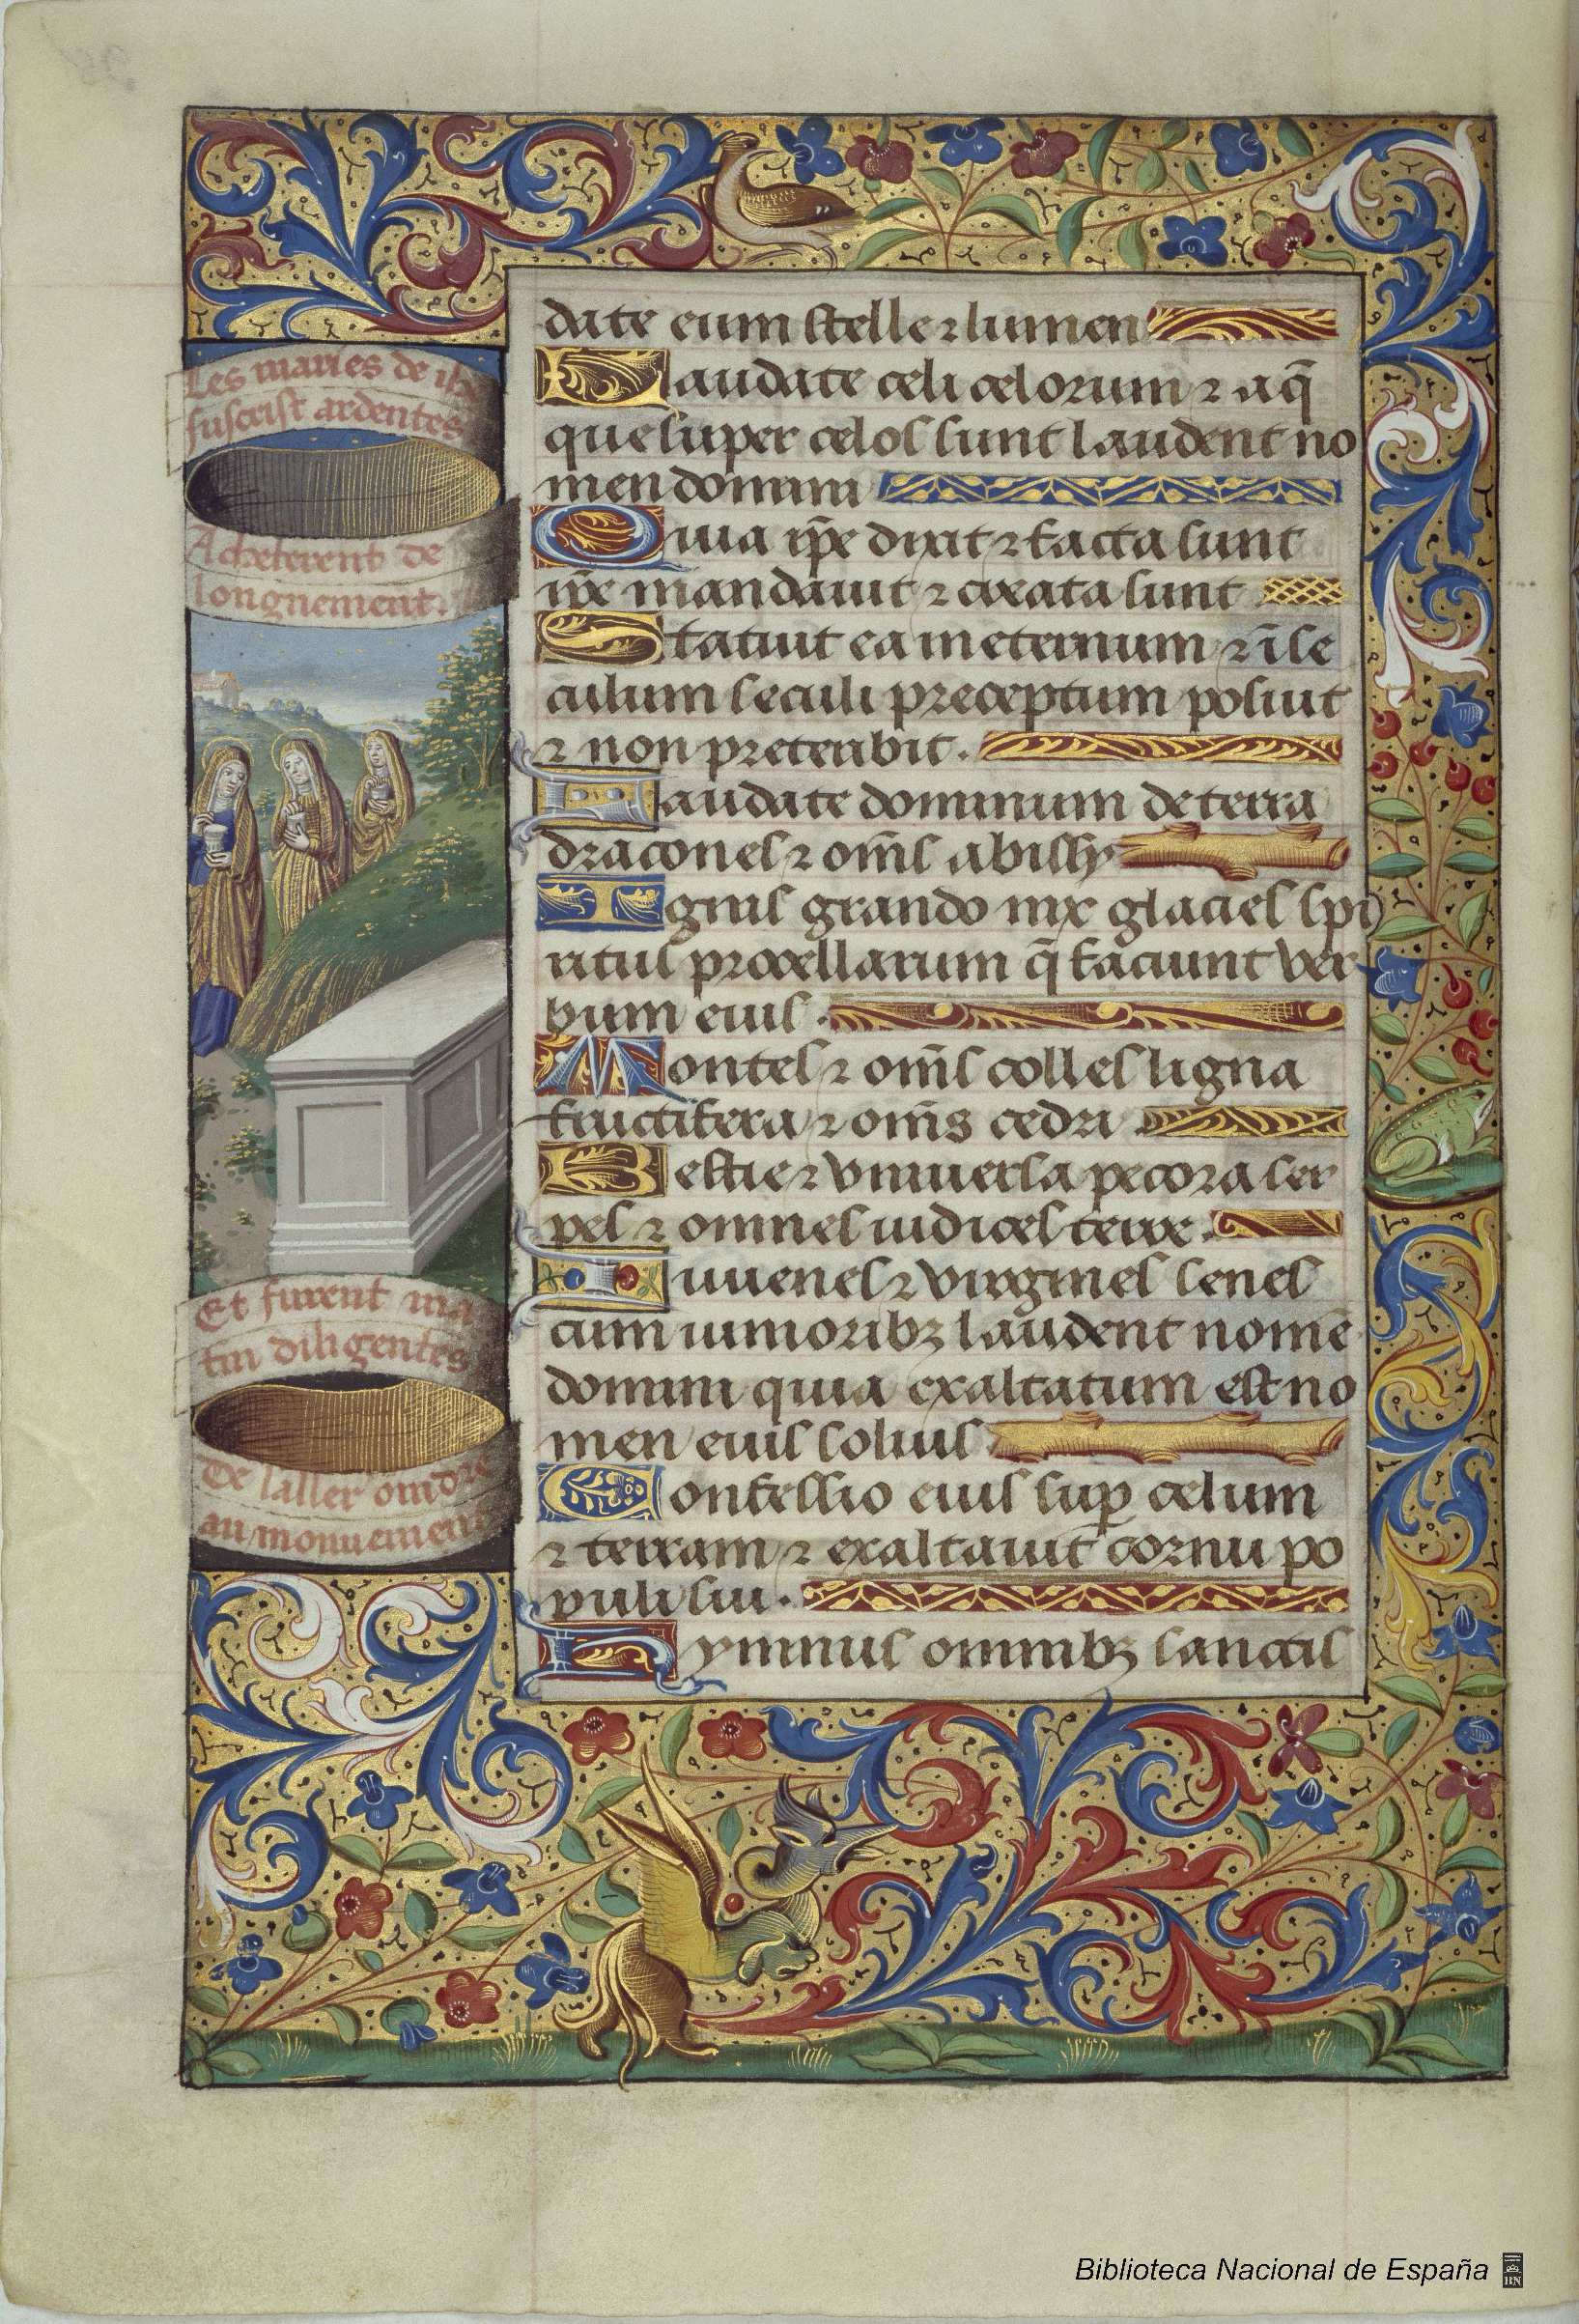 Les maries de ihs
fusceist ardentes
Acheterent de
longnement.
Et furent ma
tin diligentes
De laller oindre
au monuement
date eum stelle ⁊ lumen
Laudate celi celorum ⁊ aq̄
que super celos sunt laudent no
men domini
Quia ip̄e dixit ⁊ facta sunt
ip̄e mandauit ⁊ creata sunt
Statuit ea in eternum ⁊ ī se
culum seculi preceptum posuit
⁊ non preteribit.
Laudate dominum de terra
dracones ⁊ om̄s abissy
Ignis grando nix glacies spi
ritus procellarum q̄ faciunt ver
bum eius.
Montes ⁊ om̄s colles ligna
fructifera ⁊ om̄s cedri.
Bestie ⁊ vniuersa pecora ser
pes ⁊ omnes iudices terre.
Iuuenes ⁊ virgines senes
cum iunioribꝫ laudent nomē
domini quia exaltatum est no
men eius solius
Confessio eius suꝑ celum
⁊ terram ⁊ exaltauit cornu po
puli sui.
Hymnus omnibꝫ sanctis
Biblioteca Nacional de España